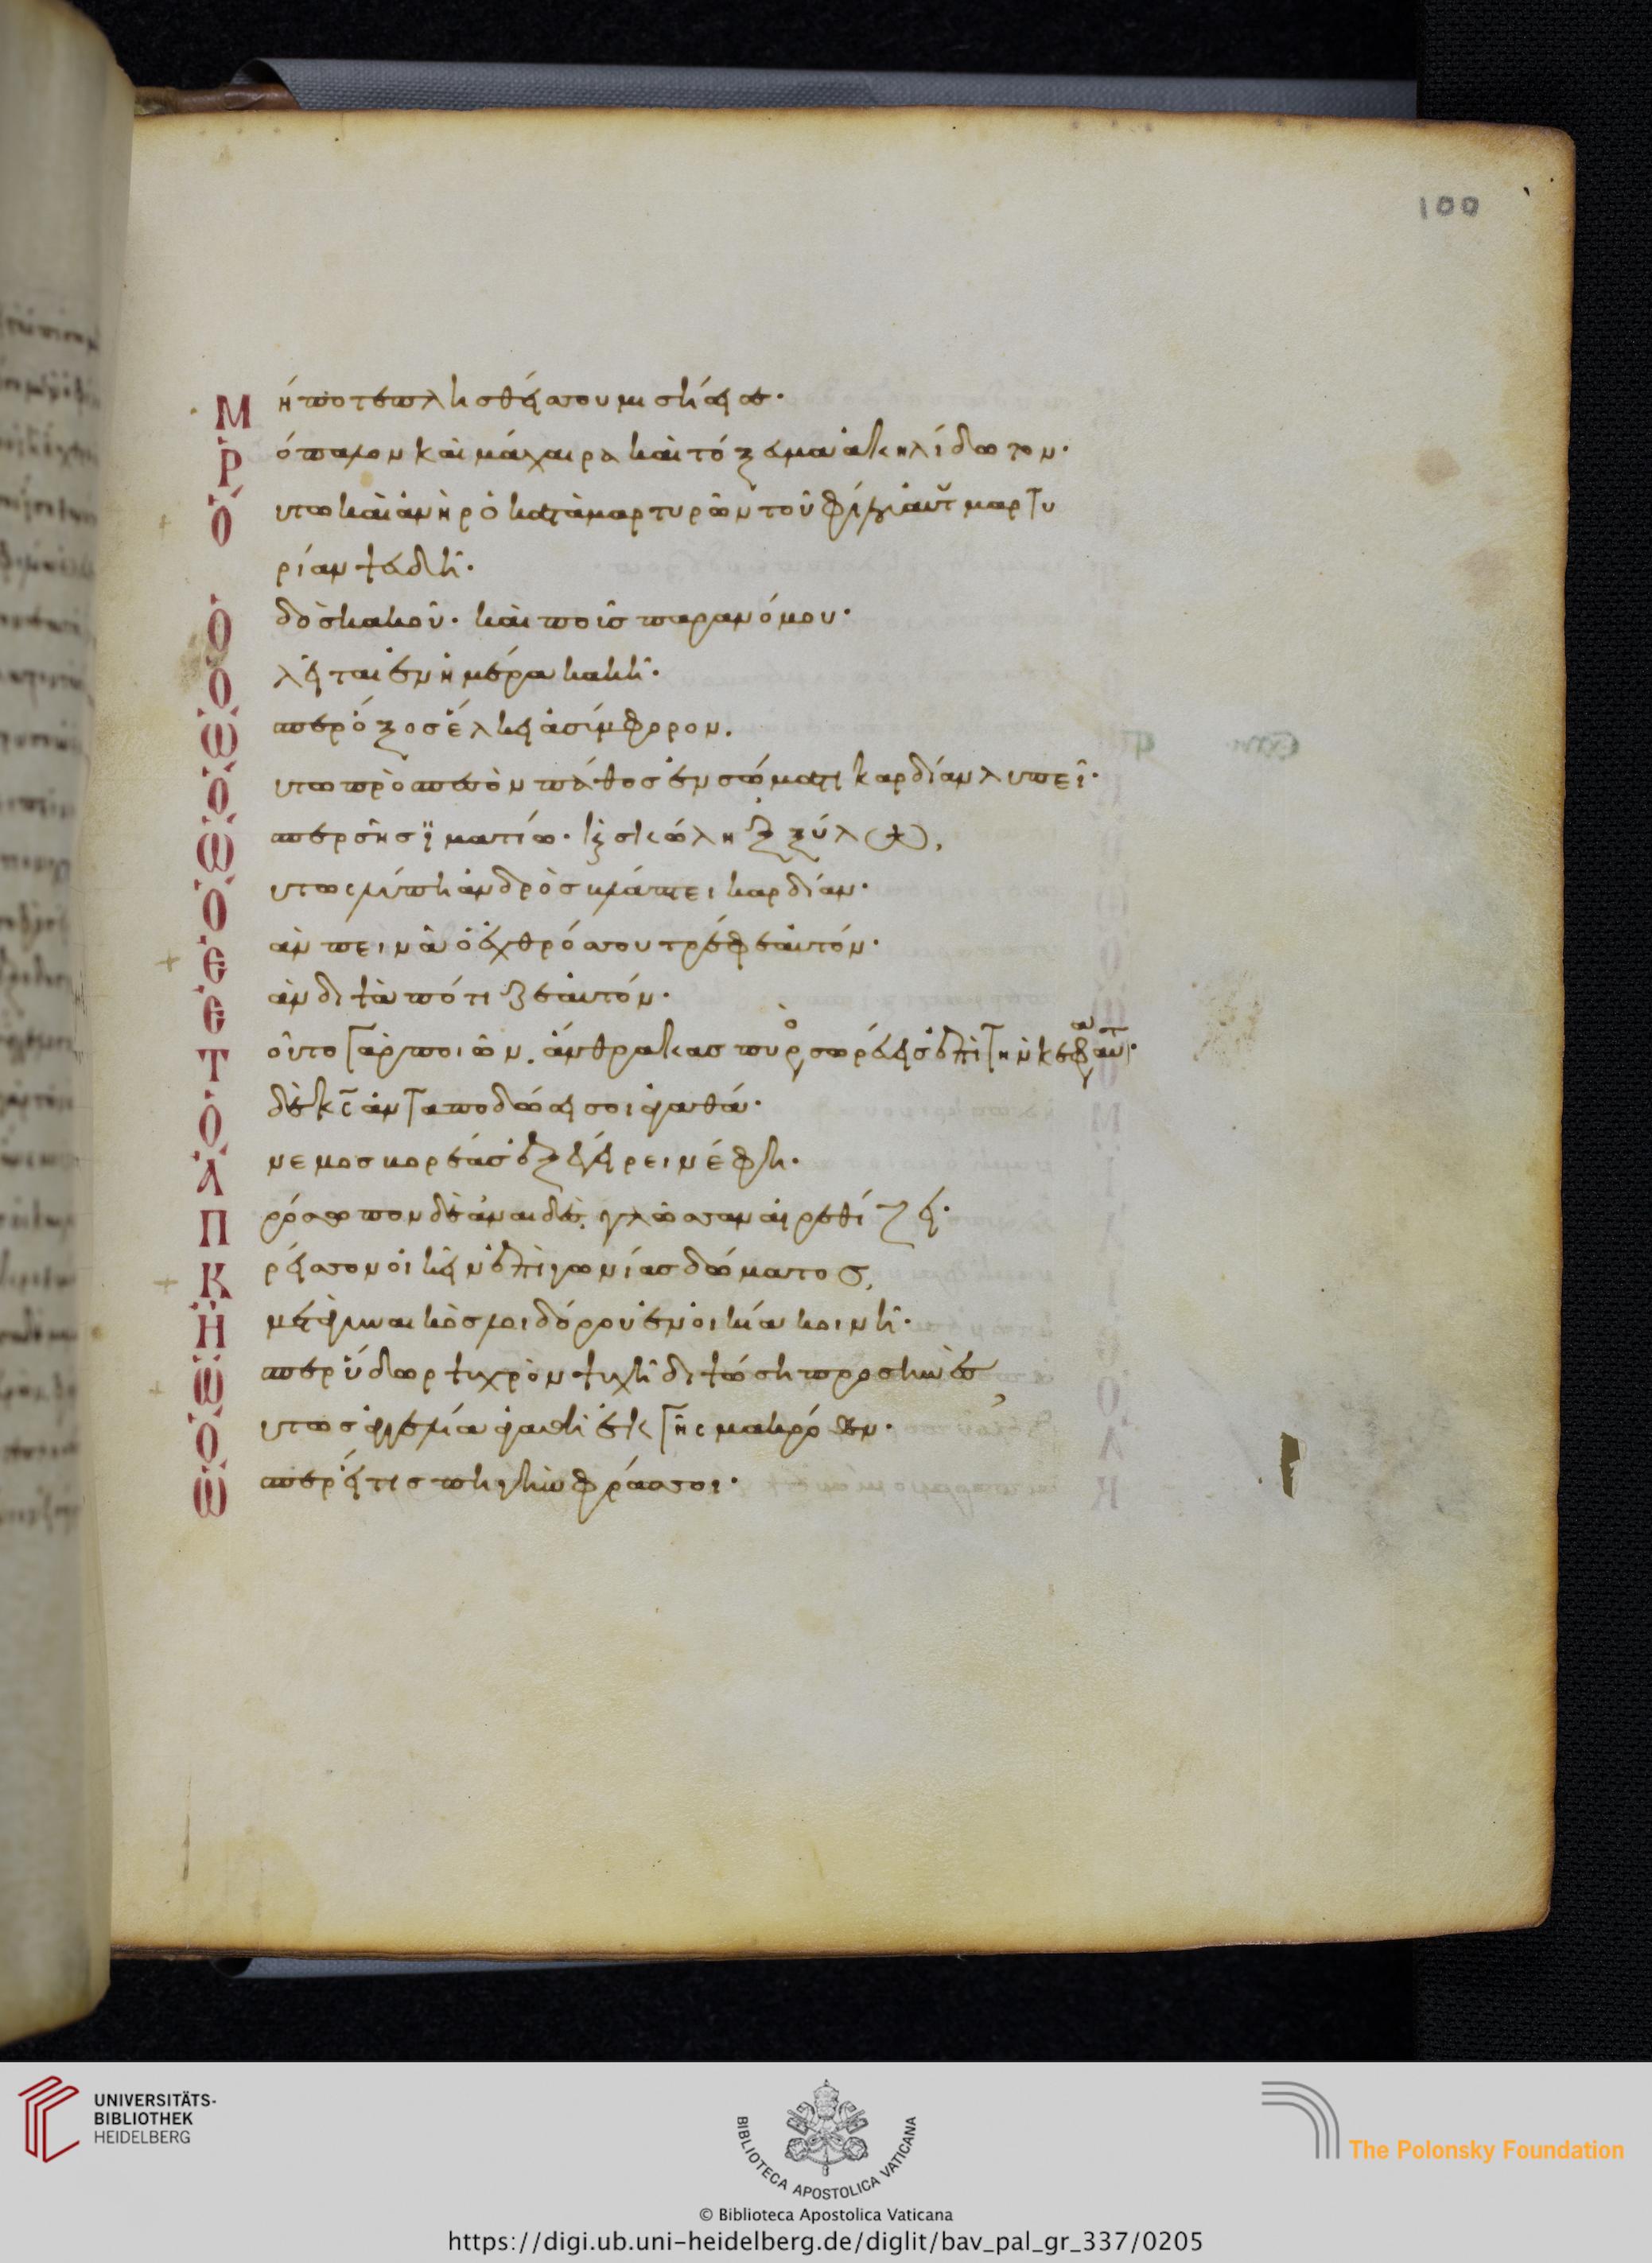 100
Μήποτε πλησθείς σου μισήσει σε·
Ῥόπαλον καὶ μάχαιρα καὶ τόξευμα ἀκηλίδωτον·
Οὕτω καὶ ἀνὴρ ὁ καταμαρτυρῶν τοῦ φίλου αὐτ μαρτυ
ρίαν ψευδῆ·
Ὁδὸς κακοῦ· καὶ ποῦς παρανόμου·
Ὀλεῖται ἐν ἡμέρα κακῆ·
Ὥσπερ ὄξος ἕλκει ἀσύμφορον.
Οὕτω προσπεσὸν πάθος ἐν σώματι καρδίαν λυπεῖ·
Ὥσπερ σῆς ϊματίω· καὶ σκώληξ ξύλω,
Οὕτως λύπη ἀνδρὸς βλάπτει καρδίαν·
Ἐὰν πεινᾶ ὁ ἐχθρός σου τρέφε αὐτόν·
Ἐὰν διψᾶ πότιζε αὐτόν·
Τοῦτο γὰρ ποιῶν. ἄνθρακας πυρὸς σωρεύσεις ἐπὶ τὴν κεφαλ αὐτ·
Ὁ δὲ κς ἀνταποδώσει σοι ἀγαθά·
Ἄνεμος βορέας ἐξεγείρει νέφη·
Πρόσωπον δὲ ἀναιδὲς γλῶσσαν ἐρεθίζει·
Κρεῖσσον οἰκεῖν ἐπὶ γωνίας δώματος,
Ἢ μετὰ γυναικὸς λοιδόρου ἐν οἰκία κοινῆ·
Ὥσπερ ὕδωρ ψυχρὸν ψυχῆ διψώση προσηνὲς,
Οὕτως ἀγγελία ἀγαθὴ ἐκ γῆς μακρόθεν·
Ὥσπερ εἴ τις πηγὴν φράσσοι·
UNIVERSITÄTS-
BIBLIOTHEK
HEIDELBERG
BIBLIOTECA APOSTOLICA VATICANA
The Polonsky Foundation
© Biblioteca Apostolica Vaticana
https://digi.ub.uni-heidelberg.de/diglit/bav_pal_gr_337/0205